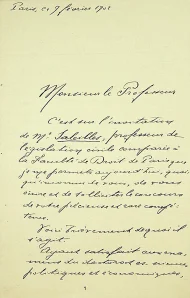 Paris, ce 9 février 1901
Monsieur le Professeur
C'est sur l'invitation
de Mr. Saleilles, professeur de
législation civile comparée à
la Faculté de Droit de Paris que
je me permets aujourd'hui, quoi
que inconnu de vous, de vous
écrire et de solliciter le concours
de votre
Voici brièvement de quoi il
s'agit.
Ayant satisfait aux exa
mens du doctorat ès sciences
politiques et économiques,